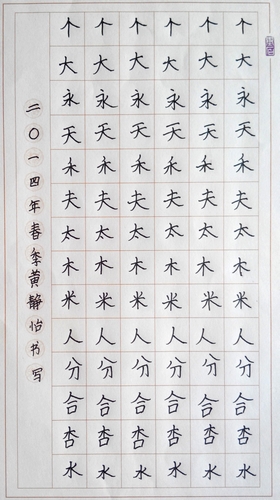 个大永天禾夫太木米人分合杏水
个大永天禾夫太木米人分合杏水
个大永天禾夫太木米人分合杏水
个大永天禾夫太木米人分合杏水
个大永天禾夫太木米人分合杏水
个大永天禾夫太木米人分合杏水
二〇一四年春季黄静怡书写